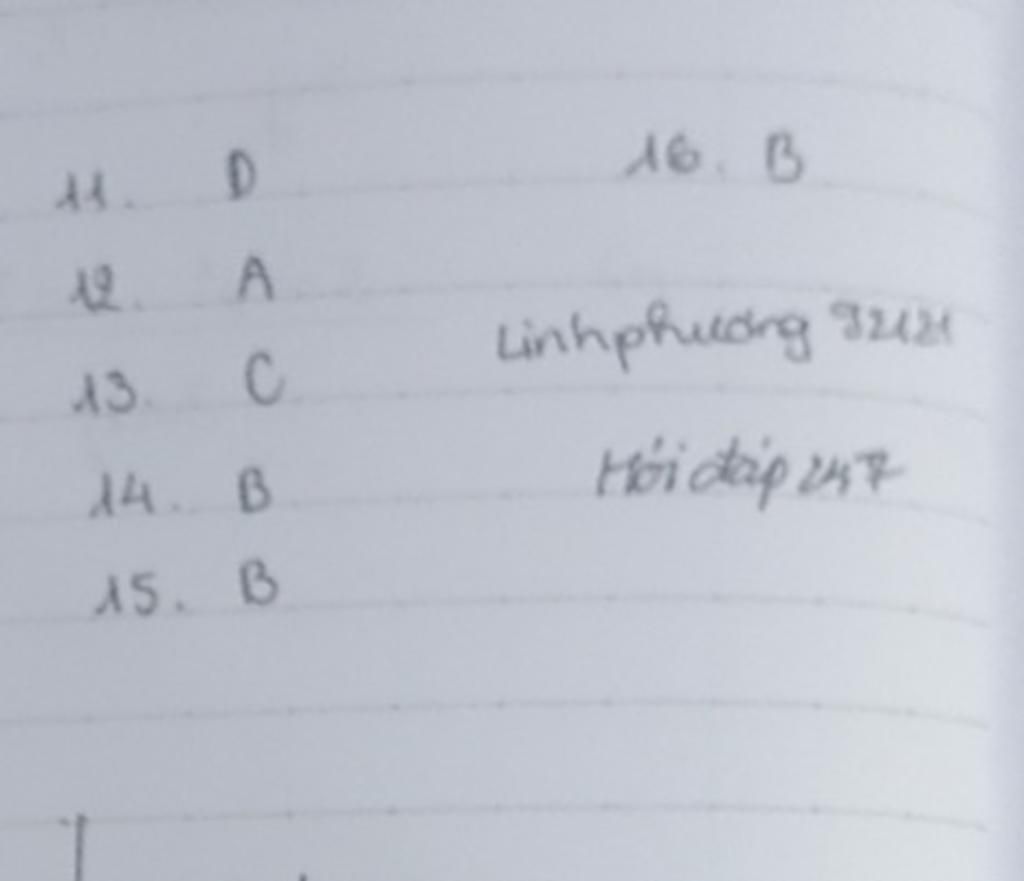 11. D
12. A
13. C
14. B
15. B
16. B
Linhphương 92121
Hỏi đáp 247